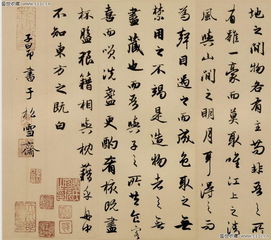 地之間物各有主苟非吾之所
有雖一豪而莫取唯江上之清
風與山間之明月耳得之而
為聲目遇之而成色取之無
禁用之不竭是造物者之無
盡藏也而吾與子之所共食客
喜而笑洗盞更酌肴核既盡
杯盤狼籍相與枕藉乎舟中
不知東方之既白
子昂書于松雪齋